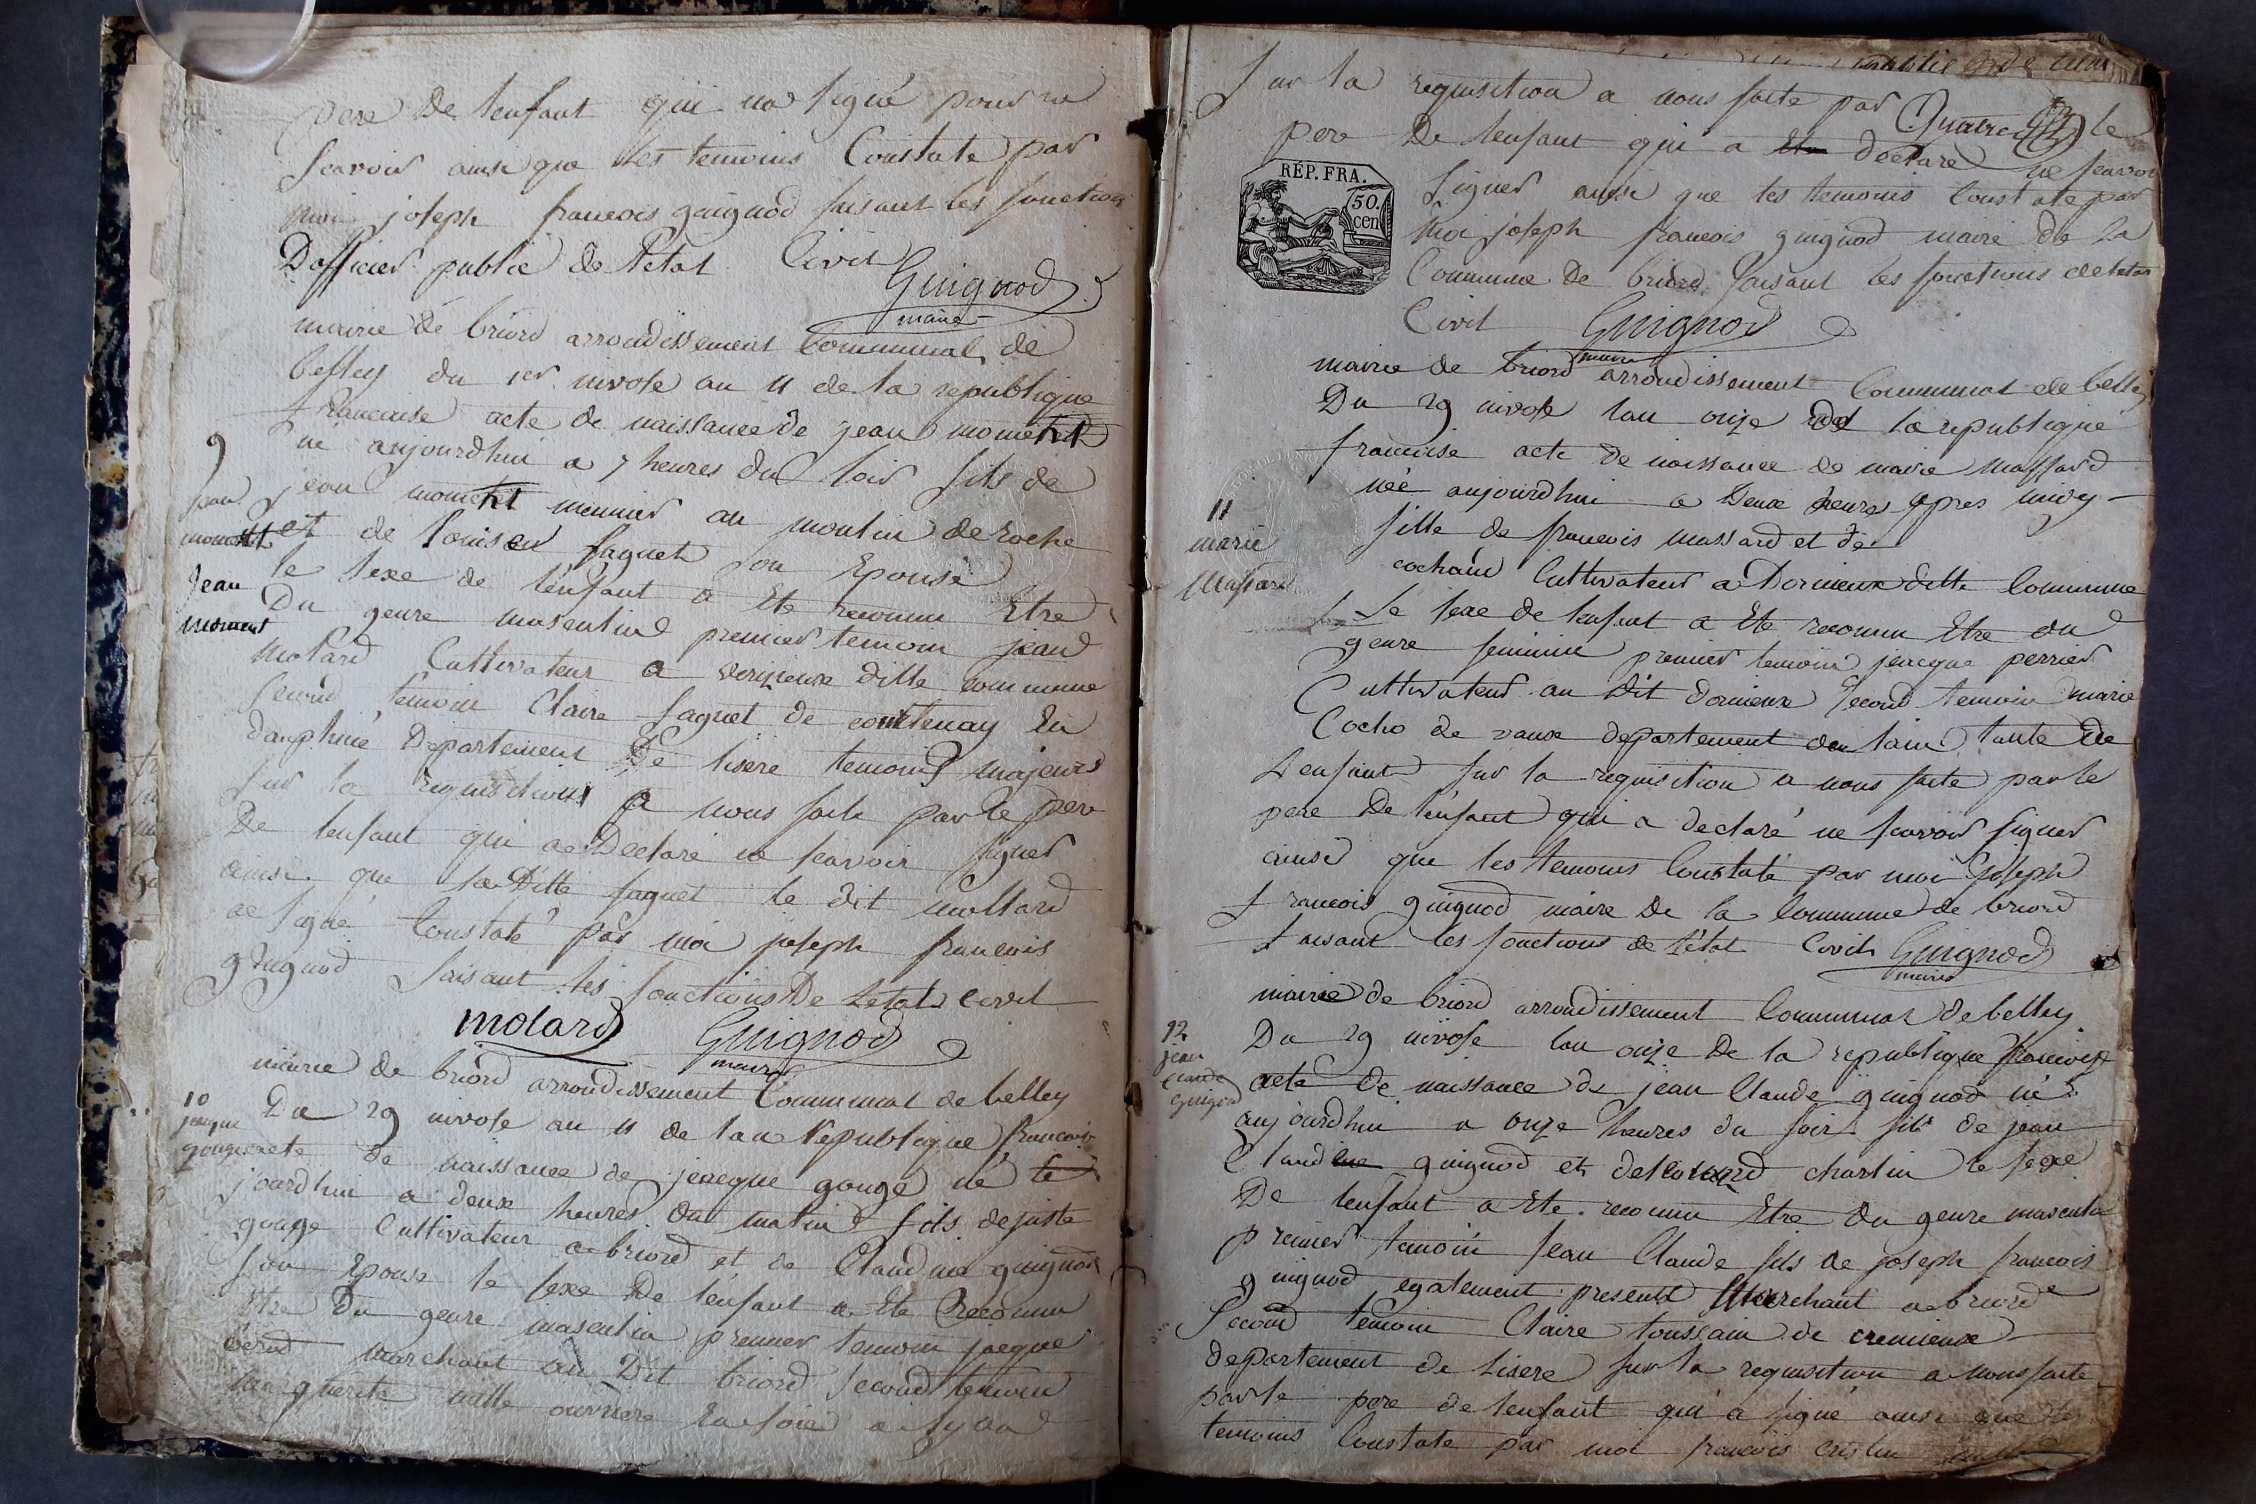 pere de lenfant qui na signé pour ne
scavoir ainsi que les temoins Constate par
moi joseph francois guignod faisant les fonctions
Dofficier public de letat Civil
Guignod
maire
mairie de briord arrondissement Communal de
belley du 1er nivose an 11 de la republique
francaise acte de naissance de jean moment
né aujourdhui a 7 heures du soir fils de
9
jean
moment
Jean
moment
jean moment meunier au moulin de roche
et de louison faguet son Epouse
le sexe de lenfant a Ete reconnu Etre
Du genre masculin premier temoin jean
molard Cultivateur a verizieux ditte commune
second temoin Claire faguet de courtenay En
dauphiné Departement De lisere temoins majeurs
sur la requisition a nous faite par le pere
De lenfant qui a Declaré ne scavoir signer
ainsi que la Ditte faguet le dit mollard
a signé Constaté par moi joseph francois
guignod faisant les fonctions De letat civil
molard Guignod
maire
mairie de briord arrondissement Communal de belley
10
jacque
gouge
Du 29 nivose an 11 de la Republique francaise
acte de naissance de jeacque gouge né
jourdhui a deux heures du matin fils de juste
gouge Cultivateur a briord et de Claudine guignod
son Epouse le sexe De lenfant a Ete Reconnu
etre du genre masculin premier temoin jacque
marchant au Dit briord second temoin
marguerite ouvriere En soie a lyon
sur la requisition a nous faite par le
Quatre
pere De lenfant qui a declare ne scavoir
RÉP. FRA.
50.
cen
signer ainsi que les temoins Constate par
Moi joseph francois guignod maire de la
Commune de briord faisant les fonctions de letat
Civil Guignod
maire
mairie de briord arrondissement Communal de belley
Du 29 nivose lan onze de la republique
francaise acte de naissance de marie massard
née aujourdhui a Deux heures apres midy
11
marie
Massard
fille de francois massard et de
cochand Cultivateur a Dornieux ditte Commune
Le sexe de lenfant a Ete reconnu Etre du
genre feminin premier temoin jeacque perrier
Cultivateur au Dit dornieux second temoin marie
Cocho de vaux departement de lain tante De
Lenfant sur la requisition a nous faite par le
pere De lenfant qui a declaré ne scavoir signer
ainsi que les temoins Constaté par moi joseph
francois guignod maire De la Commune de briord
faisant les fonctions de Létat Civil Guignod
maire
mairie de briord arrondissement Communal de belley
12
jean
claude
Guignod
Du 29 nivose lan onze De la republique francoise
acte de naissance de jean Claude guignod né
aujourdhui a onze heures du soir fils de jean
Claude guignod et de charlin le sexe
De lenfant a Ete reconnu Etre du genre masculin
premier temoin jean Claude fils de joseph francois
guignod egalement present Marchant a briord
Second temoin Claire toussain de cremieux
departement de Lisere sur la requisition a nous faite
par le pere de lenfant qui a signé ainsi que les
temoins Constate par moi francois